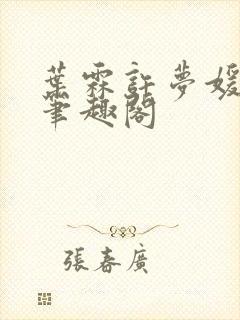 葉霖許夢媛
筆趣閣
張春廣